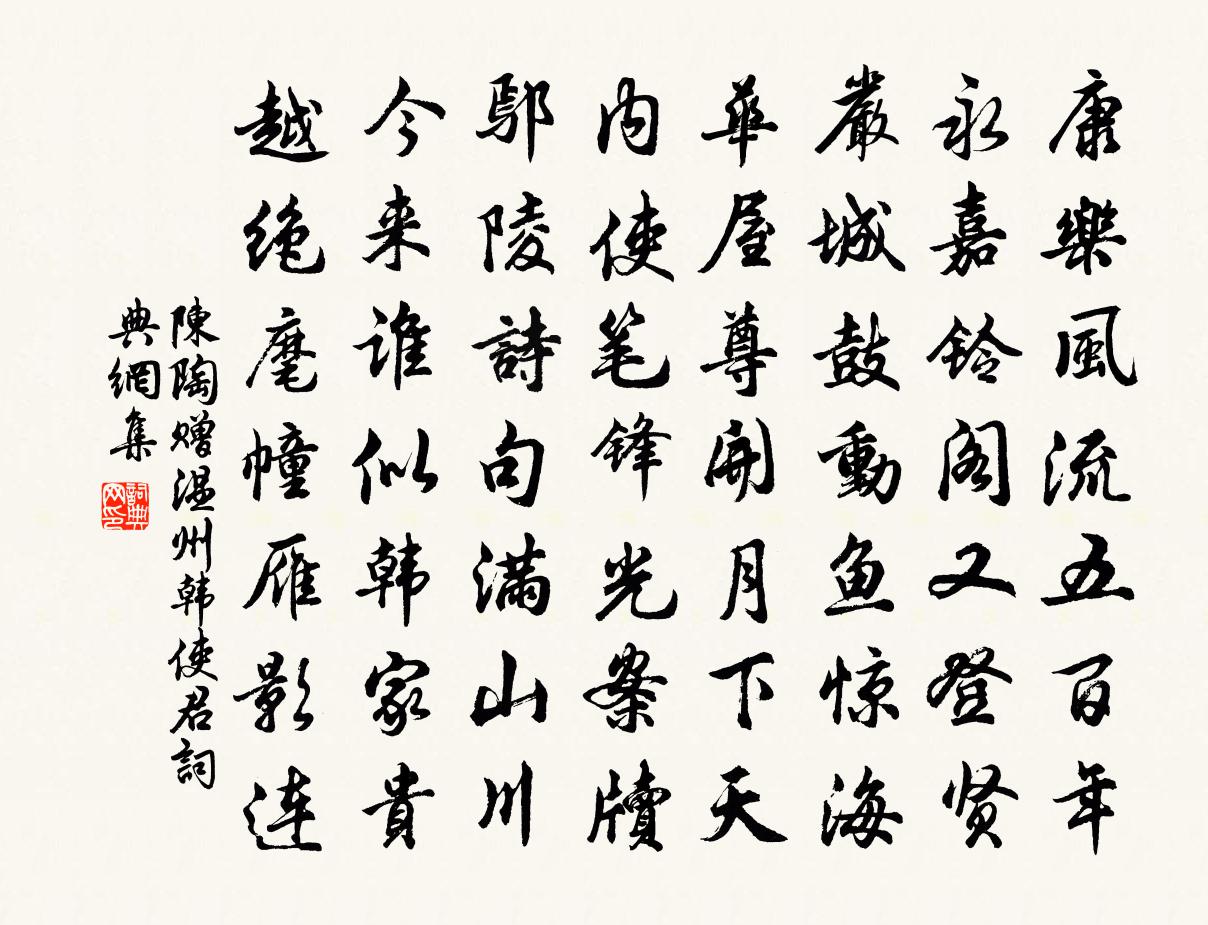 康樂風流五百年
永嘉鈴阁又登贤
嚴城鼓動鱼惊海
華屋尊開月下天
内使笔锋光案牘
鄢陵詩句满山川
今来谁似韩家貴
越绝麾幢雁影连
陳陶赠温州韩使君詞
典網集
詞典
网印